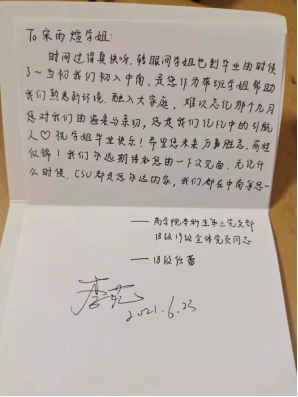 To 宋雨煊学姐:
时间过得真快呀,转眼间学姐也到毕业的时候
了~当初我们初入中南,是您作为带班学姐帮助
我们熟悉新环境、融入大家庭。难以忘记那个九月
您对我们的温柔与亲切,您是我们记忆中的引航
人♡祝学姐毕业快乐!希望您未来万事胜意,前程
似锦!我们永远期待和您的下一次见面,无论什
么时候,CSU都是您永远的家,我们都在中南等您~
——商学院本科生第三党支部
18级19级全体党员同志
——18级
2021.6.23